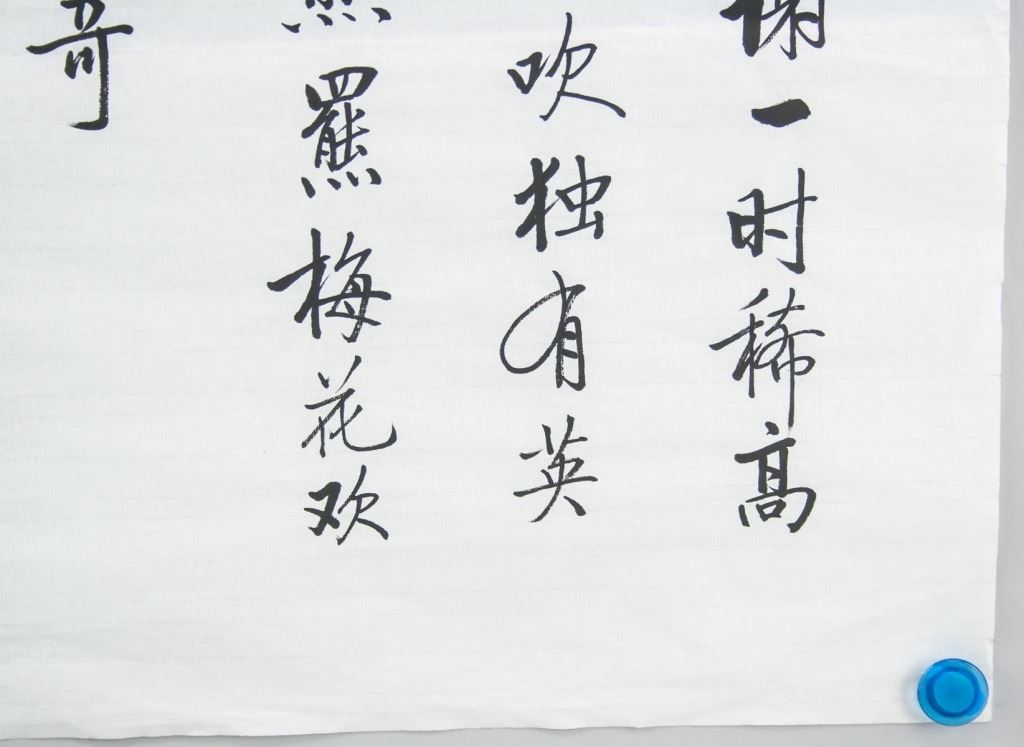 谢一时稀高
吹独有英
羆梅花欢
奇